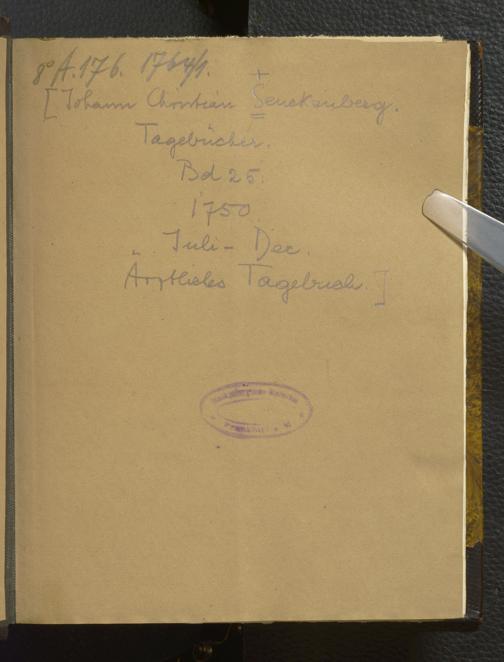 8° A.176. 1764/1.
[Johann Christian Senckenberg.
Tagebücher.
Bd 25.
1750
Juli - Dec.
Ärztliches Tagebuch.]